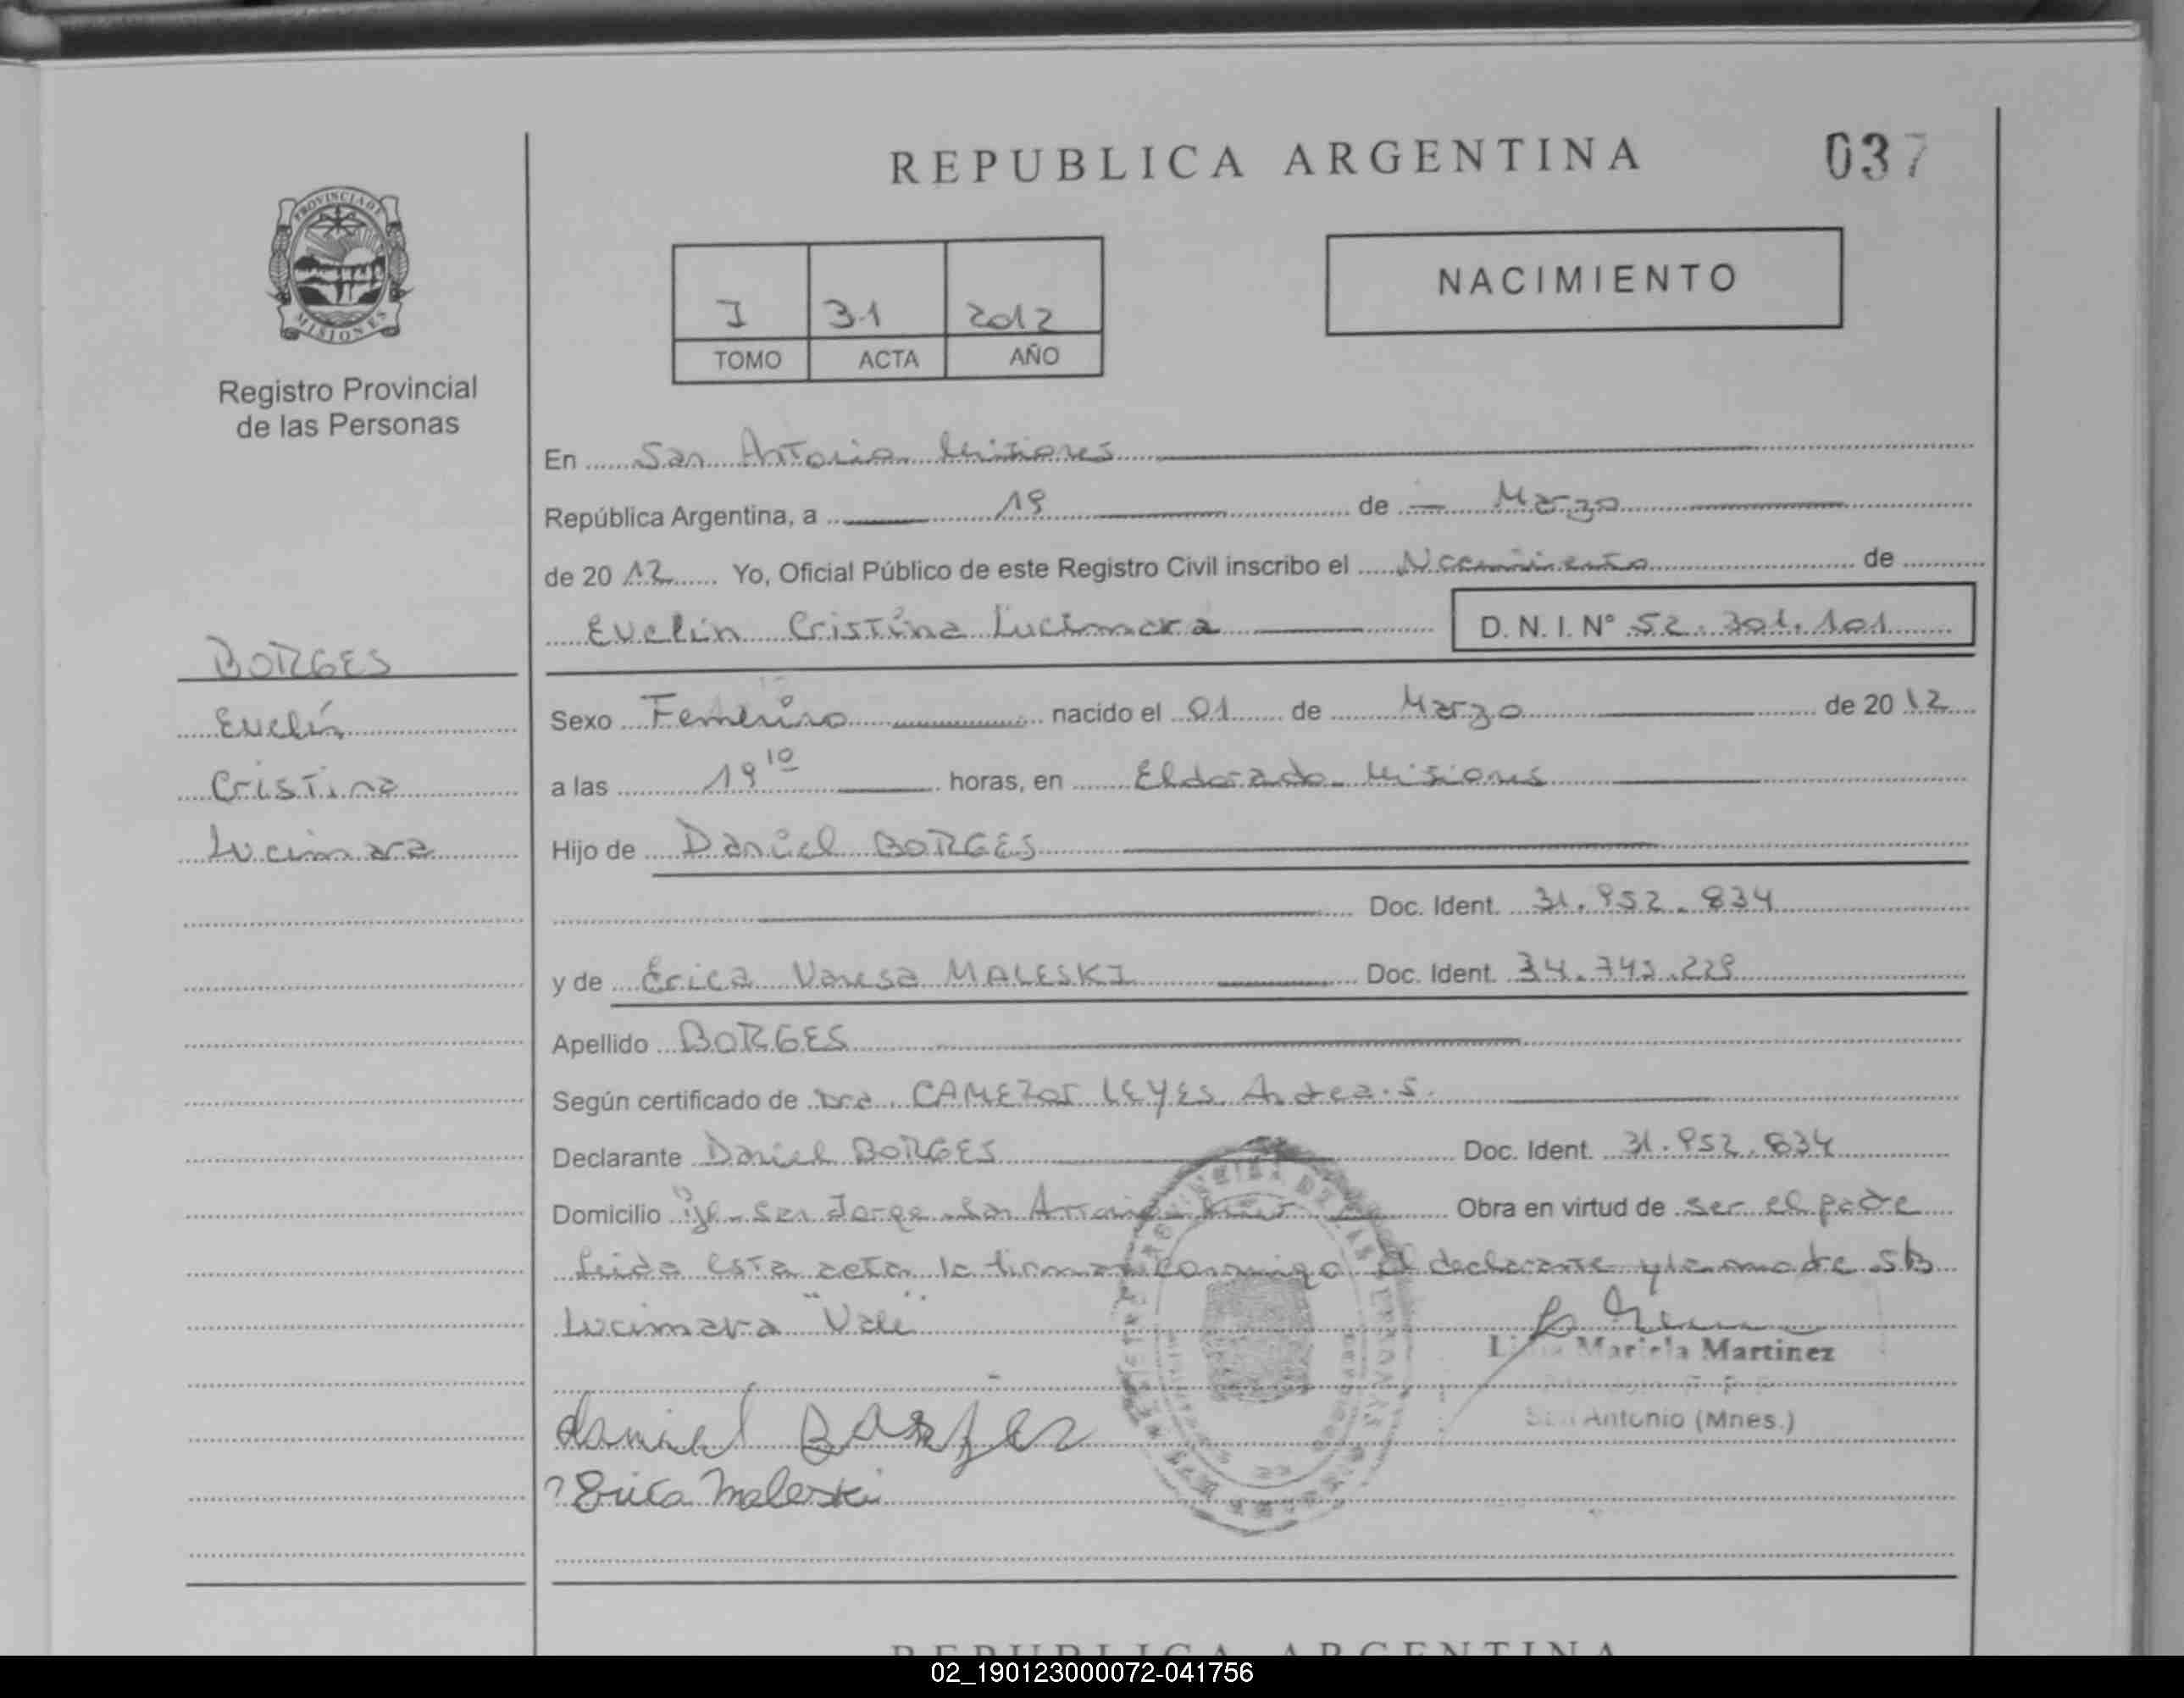 REPUBLICA ARGENTINA
037
PROVINCIA DE
MISIONES
Registro Provincial
de las Personas
I 31 2012
TOMO ACTA AÑO
NACIMIENTO
En San Antonio Misiones
República Argentina, a 19 de Marzo
de 20 12 Yo, Oficial Público de este Registro Civil inscribo el de
Evelin Cristina Lucimara
D. N. I. N° 52.301.101
BORGES
Evelin
Cristina
Lucimara
Sexo Femenino nacido el 01 de Marzo de 20 12
a las 19 10 horas, en Eldorado Misiones
Hijo de Daniel BORGES
Doc. Ident. 31.952.834
y de Erica Vanesa MALESKI Doc. Ident. 34.743.229
Apellido BORGES
Según certificado de Dra. Andrea. S.
Declarante Daniel BORGES Doc. Ident. 31.952.834
Domicilio San Jorge San Antonio Obra en virtud de ser el padre
Leida esta acta la firman conmigo el declarante y la madre SB
Lucimara "Vale"
Mariela Martinez
San Antonio (Mnes.)
daniel Borges
Erica Maleski
REPUBLICA ARGENTINA
02_190123000072-041756